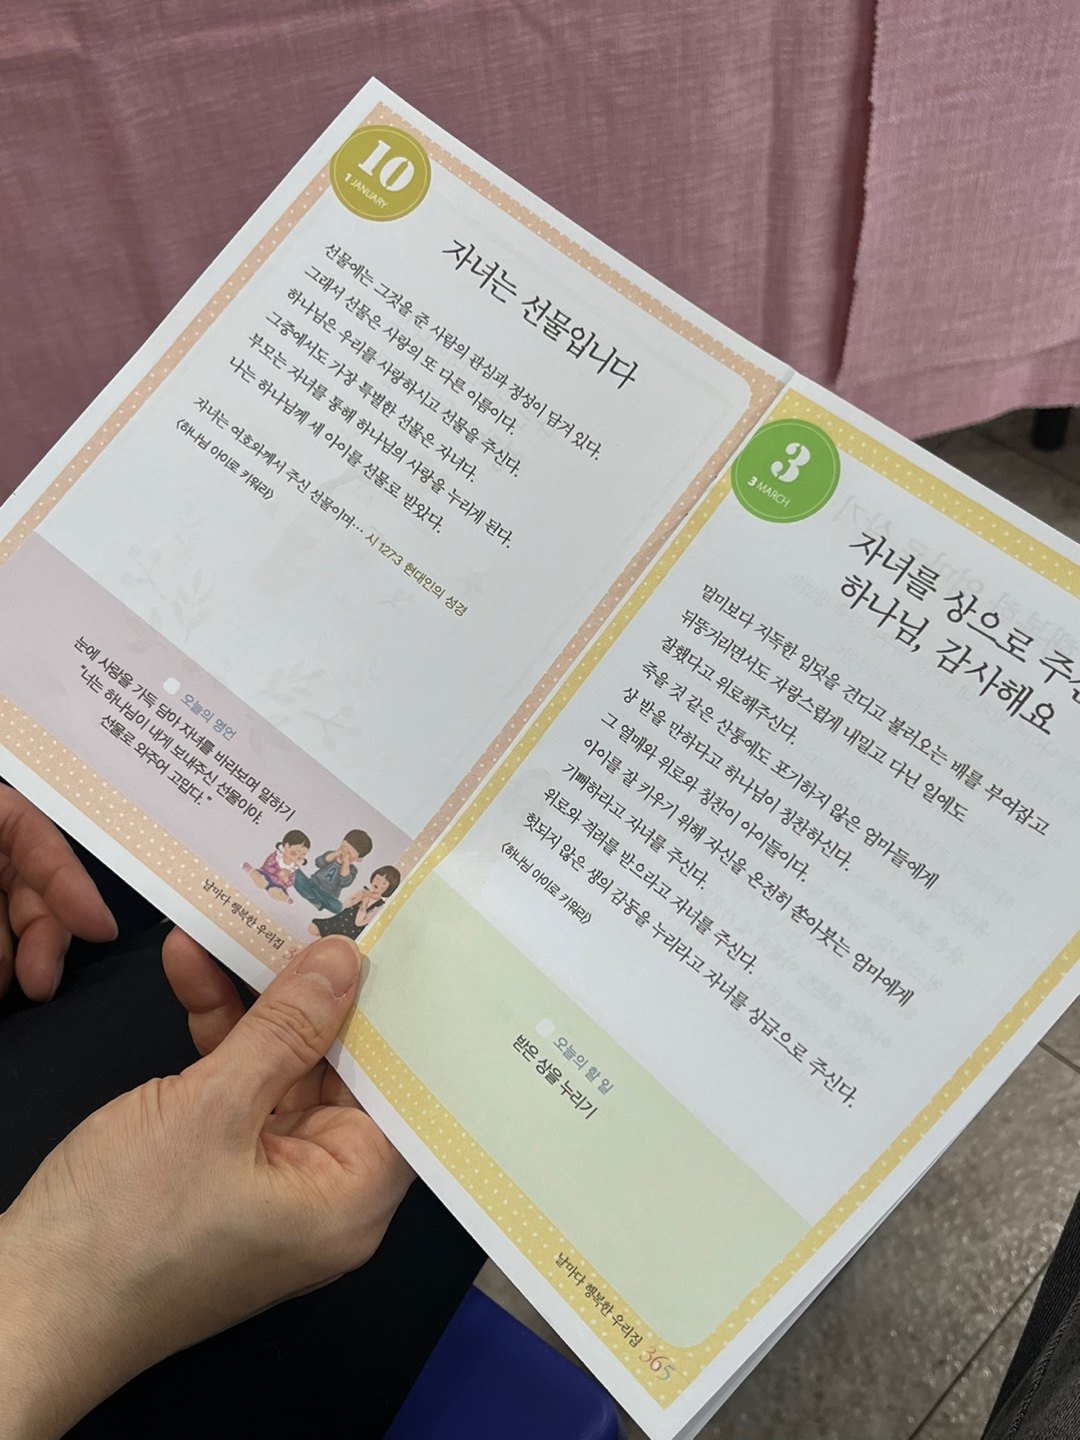 10
1 JANUARY
자녀는 선물입니다
선물에는 그것을 준 사람의 관심과 정성이 담겨 있다.
그래서 선물은 사랑의 또 다른 이름이다.
하나님은 우리를 사랑하시고 선물을 주신다.
그중에서도 가장 특별한 선물은 자녀다.
부모는 자녀를 통해 하나님의 사랑을 누리게 된다.
나는 하나님께 세 아이를 선물로 받았다.
자녀는 여호와께서 주신 선물이며… 시 127:3 현대인의 성경
〈하나님 아이로 키워라〉
오늘의 명언
눈에 사랑을 가득 담아 자녀를 바라보며 말하기
"너는 하나님이 내게 보내주신 선물이야.
선물로 와주어 고맙다."
날마다 행복한 우리집
3
3 MARCH
자녀를 상으로 주신
하나님, 감사해요
멀미보다 지독한 입덧을 견디고 불러오는 배를 부여잡고
뒤뚱거리면서도 자랑스럽게 내밀고 다닌 일에도
잘했다고 위로해주신다.
죽을 것 같은 산통에도 포기하지 않은 엄마들에게
상 받을 만하다고 하나님이 칭찬하신다.
그 열매와 위로와 칭찬이 아이들이다.
아이를 잘 키우기 위해 자신을 온전히 쏟아붓는 엄마에게
기뻐하라고 자녀를 주신다.
위로와 격려를 받으라고 자녀를 주신다.
헛되지 않은 생의 감동을 누리라고 자녀를 상급으로 주신다.
〈하나님 아이로 키워라〉
오늘의 할 일
받은 상을 누리기
날마다 행복한 우리집 365